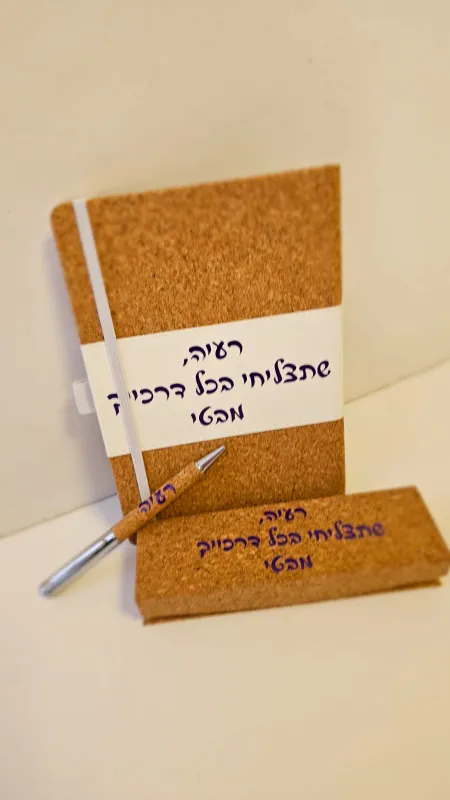 רעיה,
שתצליחי בכל דרכייך
מבטי
רעיה
רעיה,
שתצליחי בכל דרכייך
מבטי